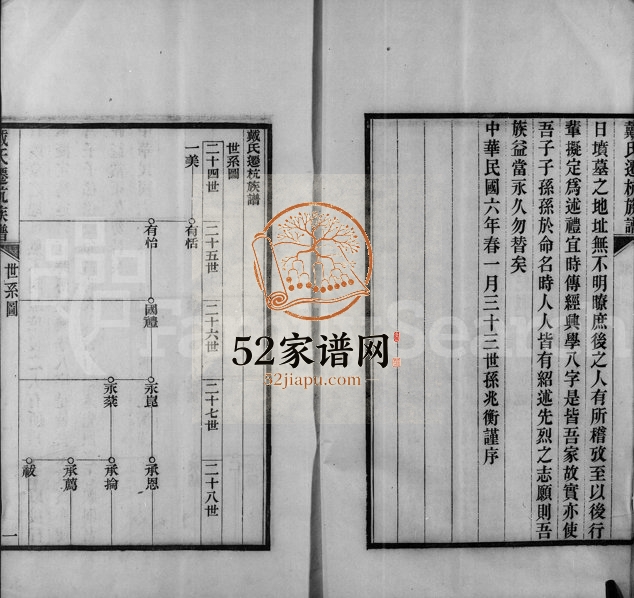 戴氏遷杭族譜
日墳墓之地址無不明瞭庶後之人有所稽攷至以後行
輩擬定為述禮宜時傳經興學八字是皆吾家故實亦使
吾子子孫孫於命名時人人皆有紹述先烈之志願則吾
族益當永久勿替矣
中華民國六年春一月三十三世孫兆衡謹序
戴氏遷杭族譜
世系圖
二十四世
二十五世
二十六世
二十七世
二十八世
一美
有恬
有怡
國禮
永崑
永棻
承恩
承掄
承薦
戴氏遷杭族譜
世系圖
一
52家谱网
52jiapu.com